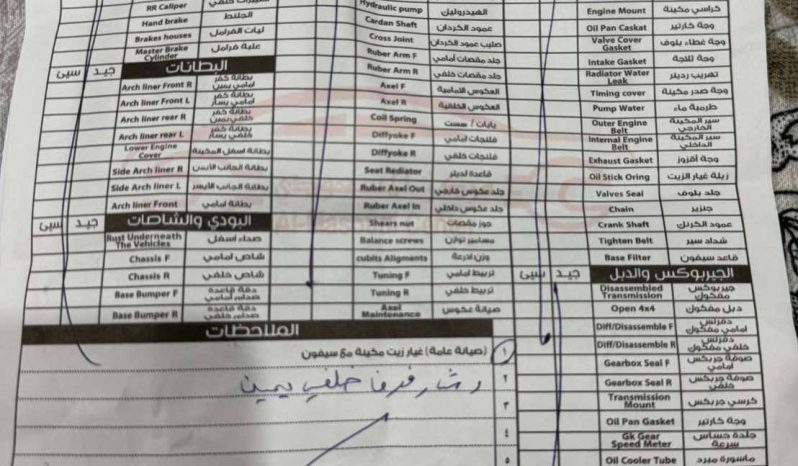 RR Caliper الجلنط
Hand brake
Brakes houses ليات الفرامل
Master Brake Cylinder علبة فرامل
جيد سيئ البطانات
Arch liner Front R بطانة كفر أمامي يمين
Arch liner Front L بطانة كفر أمامي يسار
Arch liner rear R بطانة كفر خلفي يمين
Arch liner rear L بطانة كفر خلفي يسار
Lower Engine Cover بطانة اسفل المكينة
Side Arch liner R بطانة الجانب الأيمن
Side Arch liner L بطانة الجانب الأيسر
Arch liner Front بطانة امامي
جيد سيئ البودي والشاصات
Rust Underneath The Vehicles صداء اسفل
Chassis F شاص امامي
Chassis R شاص خلفي
Base Bumper F دقة قاعدة صدام امامي
Base Bumper R دقة قاعدة صدام خلفي
Hydraulic pump الهيدروليك
Cardan Shaft عمود الكردان
Cross Joint صليب عمود الكردان
Ruber Arm F جلد مقصات أمامي
Ruber Arm R جلد مقصات خلفي
Axel F العكوس الامامية
Axel R العكوس الخلفية
Coil Spring يايات / سست
Diffyoke F فلنجات امامي
Diffyoke R فلنجات خلفي
Seat Radiator قاعدة لديتر
Ruber Axel Out جلد عكوس خارجي
Ruber Axel In جلد عكوس داخلي
Shears nut جوز مقصات
Balance screws مسامير توازن
cubits Aligments وزن اذرعة
Tuning F تربيط امامي
Tuning R تربيط خلفي
Axel Maintenance صيانة عكوس
Engine Mount كراسي مكينة
Oil Pan Casket وجة كارتير
Valve Cover Gasket وجة غطاء بلوف
Intake Gasket وجة ثلاجة
Radiator Water Leak تهريب رديتر
Timing cover وجة صدر مكينة
Pump Water طرمبة ماء
Outer Engine Belt سير المكينة الخارجي
Internal Engine Belt سير المكينة الداخلي
Exhaust Gasket وجة أقزوز
Oil Stick Oring ربلة غيار الزيت
Valves Seal جلد بلوف
Chain جنزير
Crank Shaft عمود الكرنك
Tighten Belt شداد سير
Base Filter قاعد سيفون
جيد سيئ الجيربوكس والدبل
Disassembled Transmission جيربوكس مفكوك
Open 4x4 دبل مفكوك
Diff/Disassemble F دفرنس امامي مفكوك
Diff/Disassemble R دفرنس خلفي مفكوك
Gearbox Seal F صوفة جربكس امامي
Gearbox Seal R صوفة جربكس خلفي
Transmission Mount كرسي جربكس
Oil Pan Gasket وجة كارتير
Gk Gear Speed Meter جلدة حساس سرعة
Oil Cooler Tube ماسورة مبرد
الملاحظات
١ (صيانة عامة) غيار زيت مكينة مع سيفون
٢ خلفي يمين
٣
٤
٥